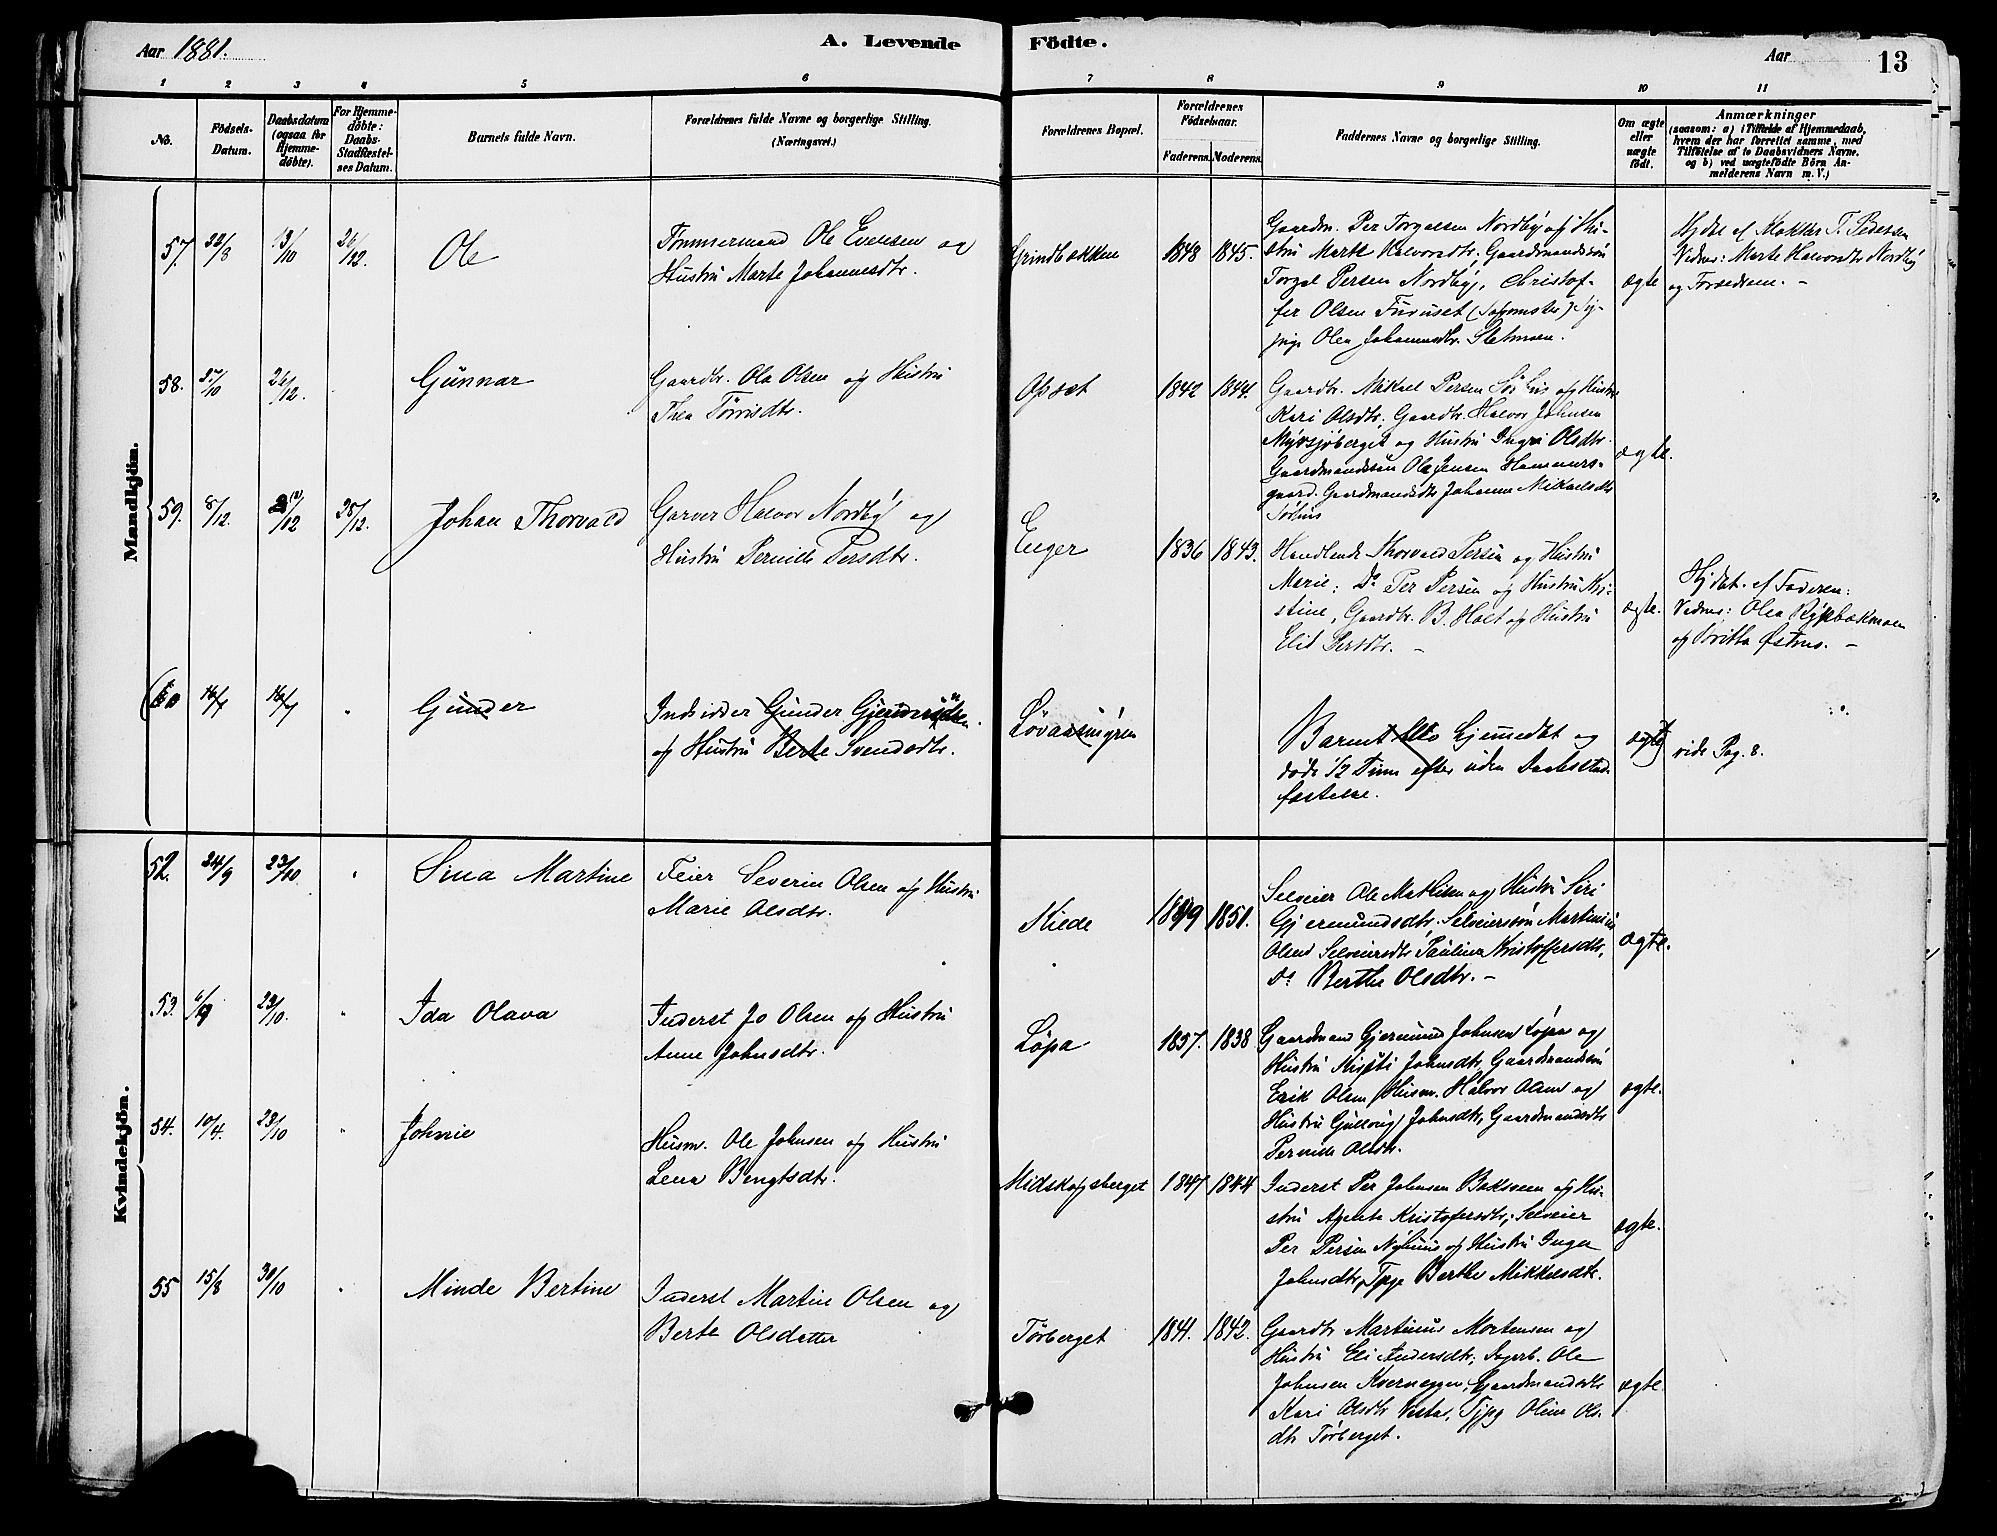 Aar 1881.
A. Levende Födte.
Aar
13
1 2 3 4 5 6 7 8 9 10 11
No.
Födsels-Datum.
Daabsdatum (ogsaa for Hjemme-döbte).
For Hjemme-döbte: Daabs-Stadfæstel-ses Datum.
Barnets fulde Navn.
Forældrenes fulde Navne og borgerlige Stilling. (Næringsvei.)
Forældrenes Bopæl.
Forældrenes Födselsaar.
Faderens. Moderens.
Faddernes Navne og borgerlige Stilling.
Om ægte eller uægte födt.
Anmærkninger
(saasom: a) i Tilfælde af Hjemmedaab, hvem der har forrettet samme, med Tilföielse af to Daabsvidners Navne, og b) ved uægtefödte Börn An-melderens Navn m. V.)
Mandkjön.
57. 22/8 13/10 26/12. Ole
Tømmermand Ole Evensen og
Hustru Marte Johannesdtr.
Grindbakken 1848 1845.
Gaardm. Per Torgalsen Nordby og Hu-
stru Marte Halvorsdtr, Gaardmandssøn
Torgal Persen Nordby, Christof-
fer Olsen Furuset
Olea Johannesdtr. Sletmoen.
ægte
Hjdbt af Klokker T. Pedersen
Vidner: Marte Halvorsdtr Nordby
og Forældrene. -
58. 27/10 26/12. Gunnar
Gaardbr. Ola Olsen og Hustru
Thea Tørrisdtr.
Opset 1842 1844.
Gaardbr. Mikael Persen og Hustru
Kari Olsdtr; Gaardbr. Halvor Johnsen
Myrsjøberget og Hustru Ingri Olsdtr.
Gaardmandssøn Ole Jensen Hammers-
gaard. Gaardmandsdtr Johanne Mikaelsdtr
Sørhus
ægte.
59. 8/12. 12/12 25/12. Johan Thorvald
Garver Halvor Nordby og
Hustru Pernille Persdtr.
Enger 1836 1843.
Handlende Thorvald Persen og Hustru
Marie; Do Per Persen og Hustru Kri-
stine, Gaardbr. B. Holt og Hustru
Elid Persdtr. -
ægte.
Hjdbt. af Faderen:
Vidner: Olea Rypbakmoen
og Britta Østmo. -
(60 16/7 16/7 " Gunder
Indsidder Gunder Gjerdersen
og Hustru Berte Svendsdtr.
Løvaasmyren
Barnet blev hjemmedbt og
døde 1/2 Time efter uden Daabsstad-
fæstelse.
ægte)
vide Pag. 8.
Kvindekjön.
52. 24/9 23/10. " Sina Martine
Feier Severin Olsen og Hustru
Marie Olsdtr.
Kiede 1849 1851.
Selveier Ole Mathisen og Hustru Siri
Gjermundsdtr. Selveiersøn Martinius
Olsen Selveiersdtr Pauline Kristoffersdtr,
Do Berthe Olsdtr. -
ægte.
53. 6/9 23/10. " Ida Olava
Inderst Jo Olsen og Hustru
Anne Johnsdtr.
Løpa 1857. 1838
Gaardmand Gjermund Johnsen Løpa og
Hustru Kisjti Johnsdtr, Gaardmandssøn
Erik Olsen, Husm. Halvor Olsen og
Hustru Gullaug Johnsdtr, Gaardmandsdtr
Pernille Olsdtr.
ægte.
54. 10/4. 23/10 " Johnie
Husm. Ole Johnsen og Hustru
Lena Bengtsdtr.
Midskogsberget 1847 1844
Inderst Per Johnsen Baksveen og Hu-
stru Agnete Kristofersdtr; Selveier
Per Persen Nyhuus og Hustru Inger
Johnsdtr, Tpge Berthe Mikkelsdtr.
ægte.
55 15/8 30/10 " Minde Bertine
Inderst Martin Olsen og
Berte Olsdatter
Tørberget 1841. 1842.
Gaardbr Martinus Mortensen og
Hustru Eli Andersdtr; Ole
Johnsen Kverneggen, Gaardmandsdtr
Kari Olsdtr, Tjpg Oline Ols-
dtr Tørberget.
ægte.